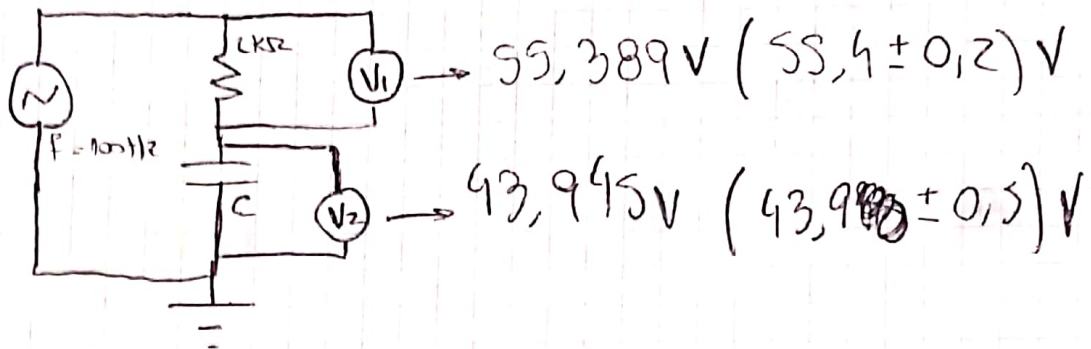 1KΩ
V1 → 55,389V (55,4 ± 0,2) V
f = 100Hz
C
V2 → 43,945V (43,9 ± 0,5) V